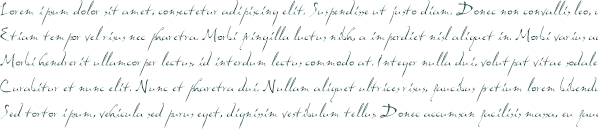 Lorem ipsum dolor sit amet, consectetur adipiscing elit. Suspendisse ut justo diam. Donec non convallis leo,
Etiam tempor vel risus nec pharetra. Morbi fringilla luctus nibh, a imperdiet nisl aliquet in. Morbi varius
Morbi hendrerit ullamcorper lectus, id interdum lectus commodo at. Integer nulla dui, volutpat vitae sodale
Curabitur et nunc elit. Nunc et pharetra dui. Nullam aliquet ultrices risus, faucibus pretium lorem bibend
Sed tortor ipsum, vehicula sed purus eget, dignissim vestibulum tellus. Donec accumsan facilisis massa, eu